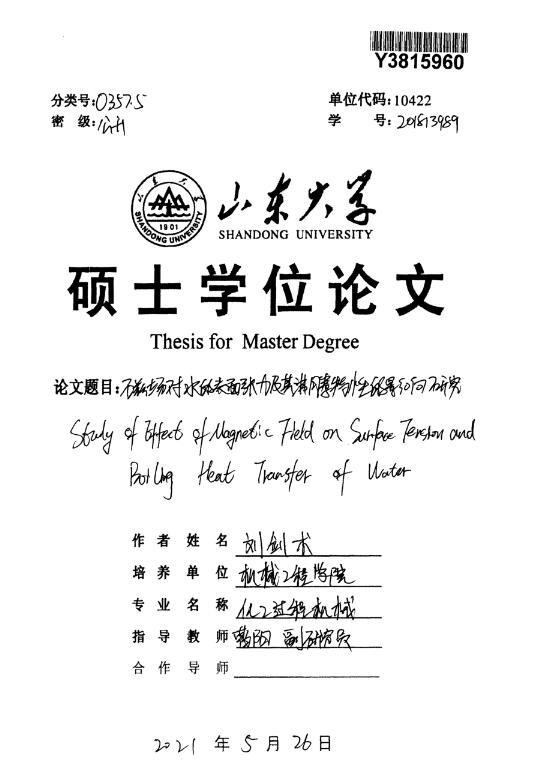 Y3815960
分类号:O357.5
单位代码:10422
密 级:公开
学 号:201813989
山东大学
SHANDONG UNIVERSITY
1901
SHANDONG UNIVERSITY
硕士学位论文
Thesis for Master Degree
论文题目:磁场对水的表面张力及其沸腾特性的影响研究
Study of Effect of Magnetic Field on Surface Tension and
Boiling Heat Transfer of Water
作 者 姓 名 刘剑术
培 养 单 位 机械工程学院
专 业 名 称 化工过程机械
指 导 教 师 副研究员
合 作 导 师
2021 年 5 月 26 日